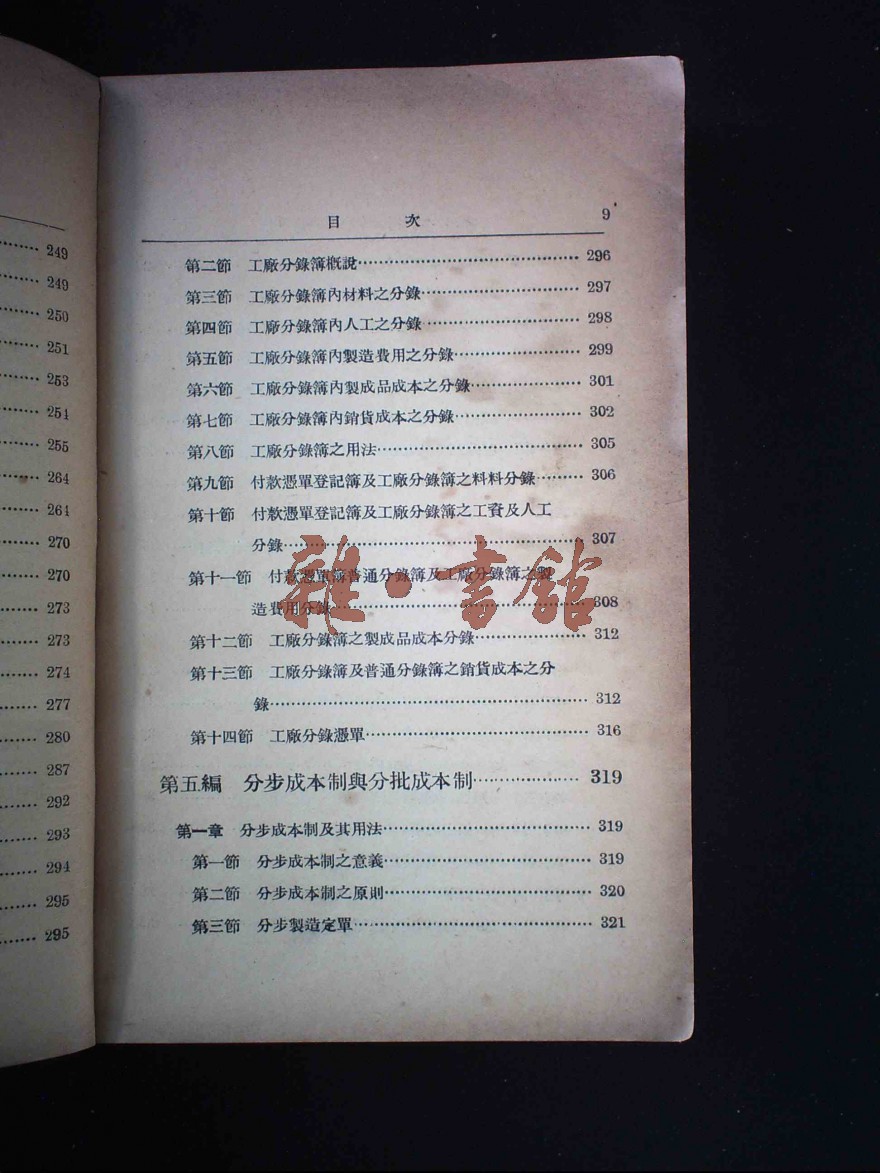 249
249
250
251
253
254
255
264
264
270
270
273
273
274
277
280
287
292
293
294
295
295
目 次 9
第二節 工廠分錄簿概說 296
第三節 工廠分錄簿內材料之分錄 297
第四節 工廠分錄簿內人工之分錄 298
第五節 工廠分錄簿內製造費用之分錄 299
第六節 工廠分錄簿內製成品成本之分錄 301
第七節 工廠分錄簿內銷貨成本之分錄 302
第八節 工廠分錄簿之用法 305
第九節 付款憑單登記簿及工廠分錄簿之料料分錄 306
第十節 付款憑單登記簿及工廠分錄簿之工資及人工
分錄 307
第十一節 付款憑單簿普通分錄簿及工廠分錄簿之製
造費用分錄 308
第十二節 工廠分錄簿之製成品成本分錄 312
第十三節 工廠分錄簿及普通分錄簿之銷貨成本之分
錄 312
第十四節 工廠分錄憑單 316
第五編 分步成本制與分批成本制 319
第一章 分步成本制及其用法 319
第一節 分步成本制之意義 319
第二節 分步成本制之原則 320
第三節 分步製造定單 321
雜·書館